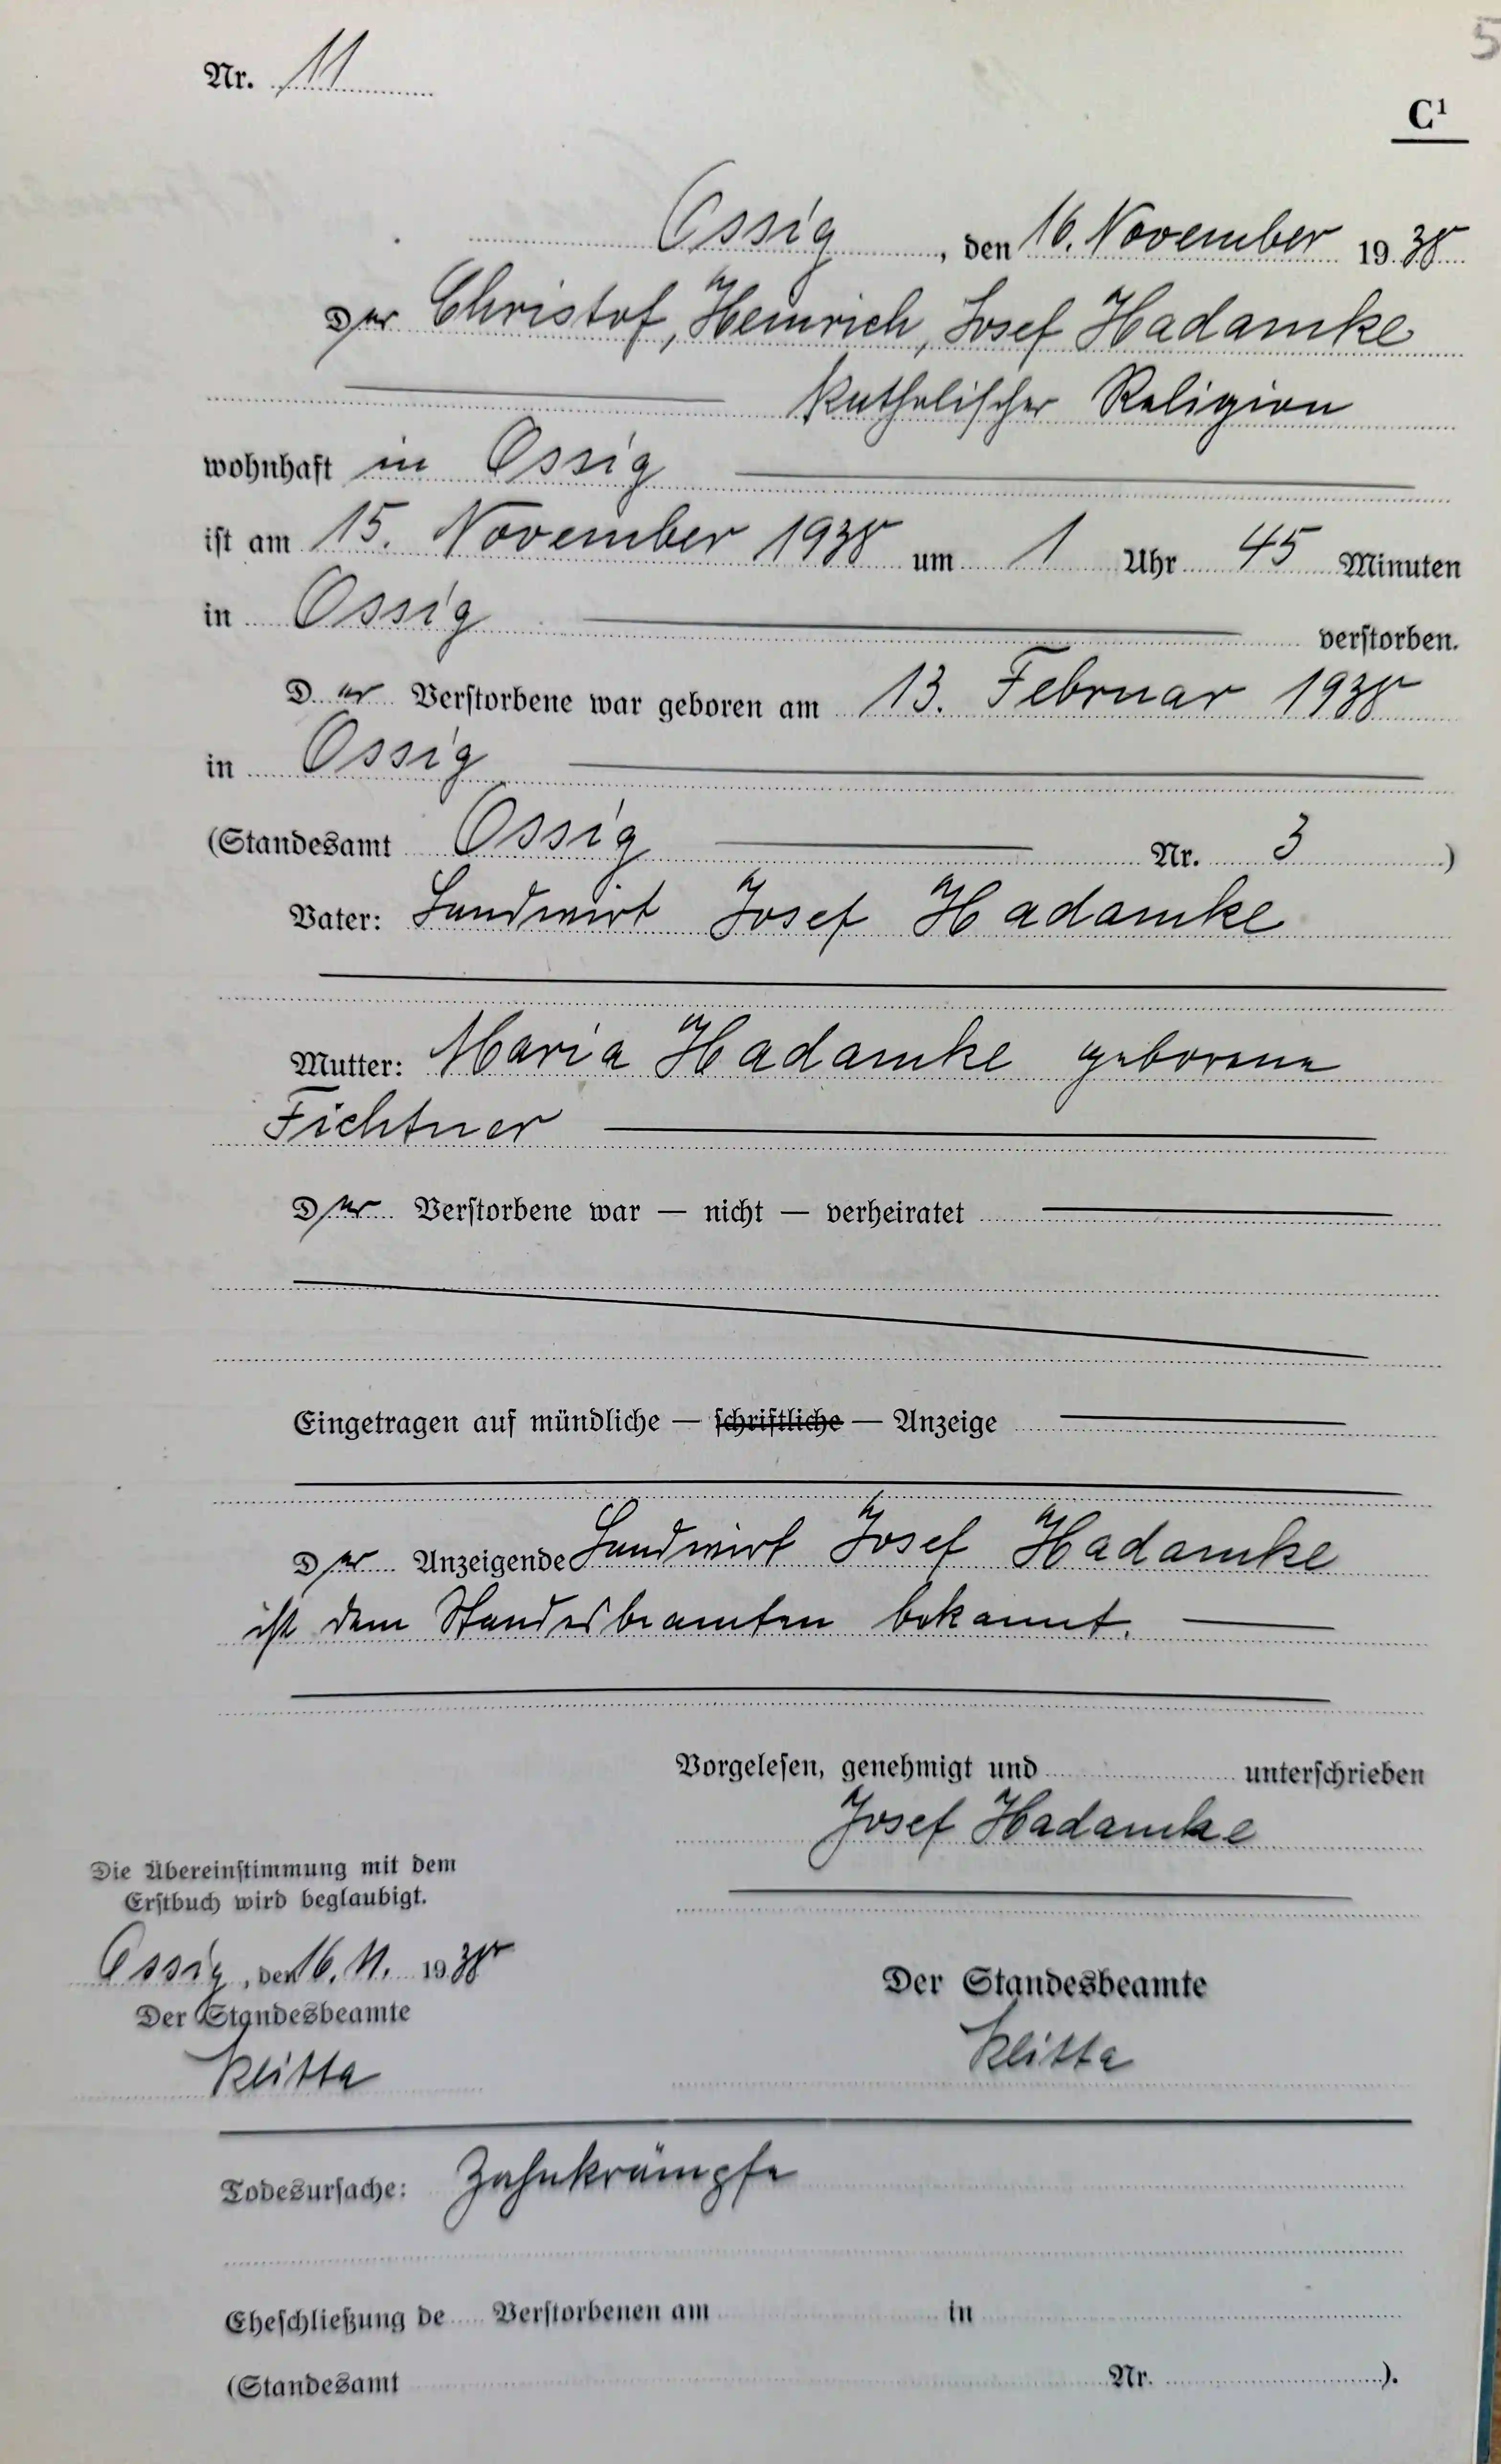 5
Nr. 11
C¹
Ossig, den 16. November 1938
Der Christof, Heinrich, Josef Hadamke
katholischer Religion
wohnhaft in Ossig
ist am 15. November 1938 um 1 Uhr 45 Minuten
in Ossig verstorben.
Der Verstorbene war geboren am 13. Februar 1938
in Ossig
(Standesamt Ossig Nr. 3)
Vater: Landwirt Josef Hadamke
Mutter: Maria Hadamke geborene
Fichtner
Der Verstorbene war — nicht — verheiratet
Eingetragen auf mündliche — schriftliche — Anzeige
Der Anzeigende Landwirt Josef Hadamke
ist dem Standesbeamten bekannt.
Vorgelesen, genehmigt und unterschrieben
Josef Hadamke
Die Übereinstimmung mit dem
Erstbuch wird beglaubigt.
Ossig, den 16. 11. 1938
Der Standesbeamte
Klitta
Der Standesbeamte
Klitta
Todesursache: Zahnkrämpfe
Eheschließung de Verstorbenen am in
(Standesamt Nr. ).